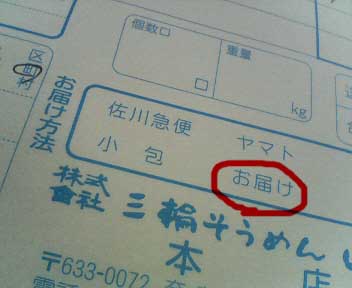 個数口
重量
口
kg
区
町
村
お届け方法
佐川急便 ヤマト
小包 お届け
株式
會社 三輪そうめん
本店
〒633-0072